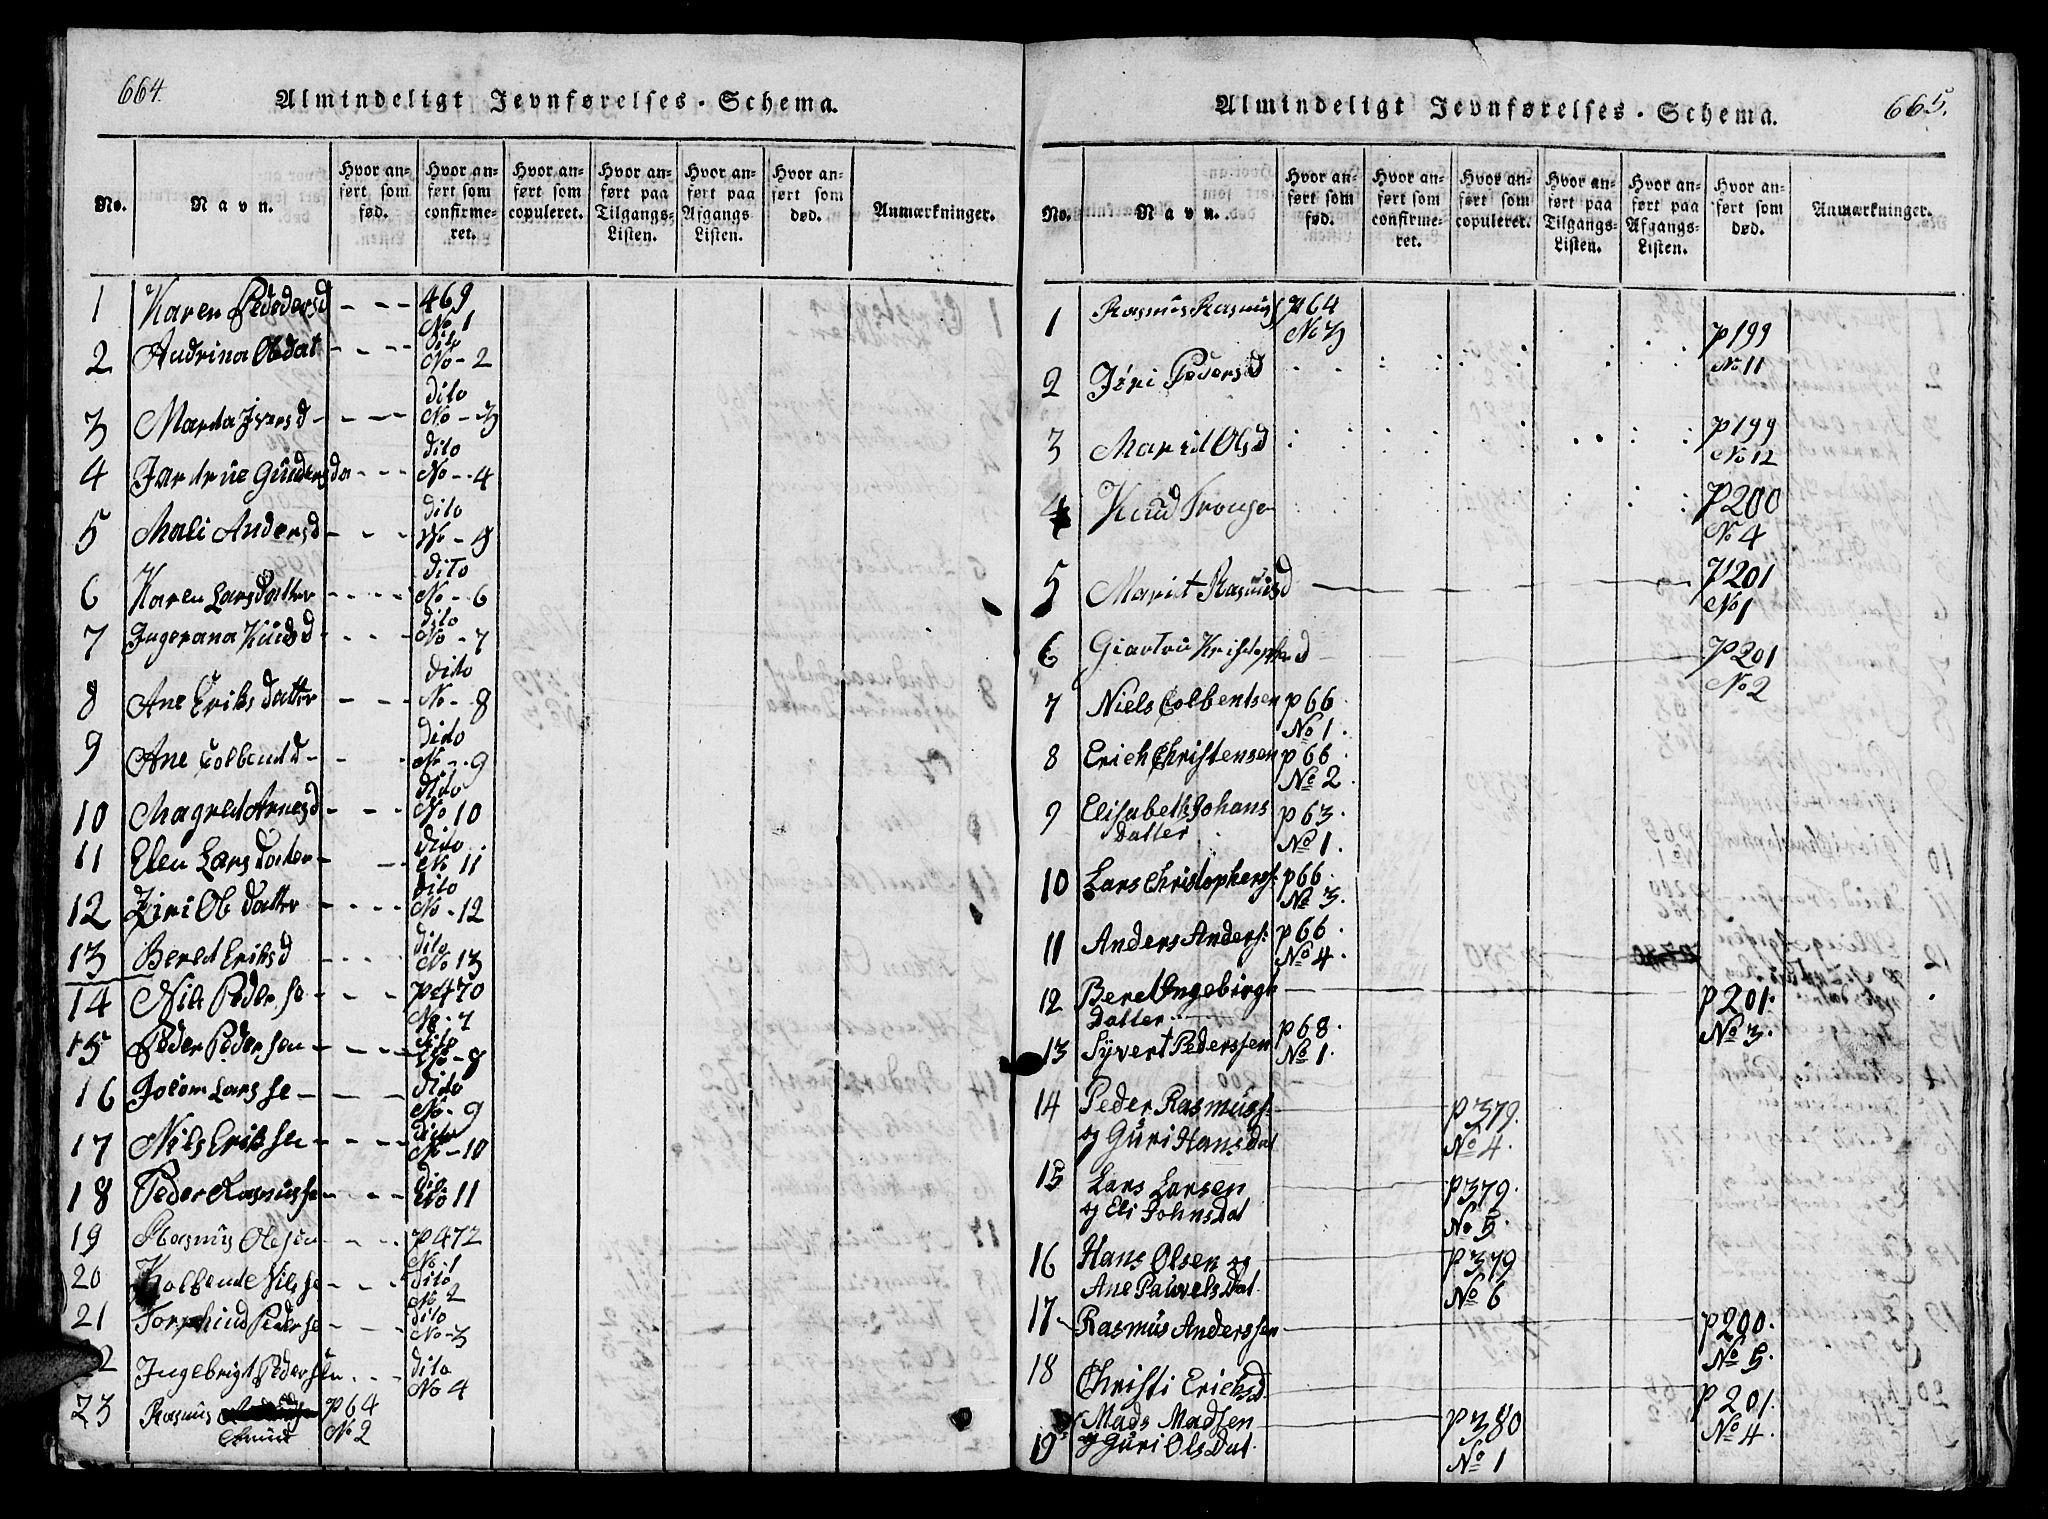 664.
Almindeligt Jevnførelses-Schema.
No.
Navn.
Hvor anført som fød.
Hvor anført som confirmeret.
Hvor anført som copuleret.
Hvor anført paa Tilgangs-Listen.
Hvor anført paa Afgangs-Listen.
Hvor anført som død.
Anmærkninger.
1 Karen Pedersd - - - 469 No. 1
2 Andrina Olsdat - - - Dito No - 2
3 Marta Iversd - - - - Dito No - 3
4 Jardrue Gundersda - - - Dito No - 4
5 Mali Andersd - - - Dito No - 5
6 Karen Larsdatter - - - - Dito No - 6
7 Ingerana Knudsd - - - Dito No - 7
8 Ane Eriksdatter - - - Dito No - 8
9 Ane Colbentd - - - Dito No - 9
10 Magret Arnesd - - - Dito No 10
11 Elen Larsdater - - Dito No 11
12 Ziri Olsdatter - - - - Dito No - 12
13 Beret Eriksd - - - - Dito No 13
14 Nils Pederse - - - pe 470 No - 7
15 Peder Pedersen - - - Dito No - 8
16 Joiom Larsse - - - - Dito No - 9
17 Nils Eriksen - - - - Dito No - 10
18 Peder Rasmusse - - - Dio No 11
19 Rasmus Olesen - - - p 472 No. 1
20 Kolbent Nilsse - - - Dito No 2
21 Torphind Pederse - - - Dito No - 3
22 Ingebrigt Pedersen - - - Dito No 4
23 Rasmus Knud p 64 No 2
Almindeligt Jevnførelses-Schema.
665.
No.
Navn.
Hvor anført som fød.
Hvor anført som confirmeret.
Hvor anført som copuleret.
Hvor anført paa Tilgangs-Listen.
Hvor anført paa Afgangs-Listen.
Hvor anført som død.
Anmærkninger.
1 Rasmus Rasmus p 64 No 3
2 Jøri Pedersd p 199 No 11
3 Marit Olsd p 199 No 12
4 Knud Tronse p 200 No 4
5 Marit Rasmusd p 201 No 1
6 Giartru Kristophersd p 201 No 2
7 Niels Colbentsen p 66. No 1.
8 Erich Christensen p 66. No 2.
9 Elisabeth Johans
Datter p 63. No 1.
10 Lars Christophers. p 66. No 3.
11 Anders Anders: p 66. No 4.
12 Beret Ingebrigt
Datter p 201. No 3.
13 Syvert Pederssen p 68. No 1.
14 Peder Rasmuss.
og Guri Hansdat p 379. No 4.
15 Lars Larsen
og Eli Johnsdat p 379. No 5.
16 Hans Olsen og
Ane Pauvelsdat. p 379 No 6
17 Rasmus Anderssen p 200. No 5.
18 Christi Erichsd. p 201. No 4.
19 Mads Madsen
og Guri Olsdat. p 380 No 1